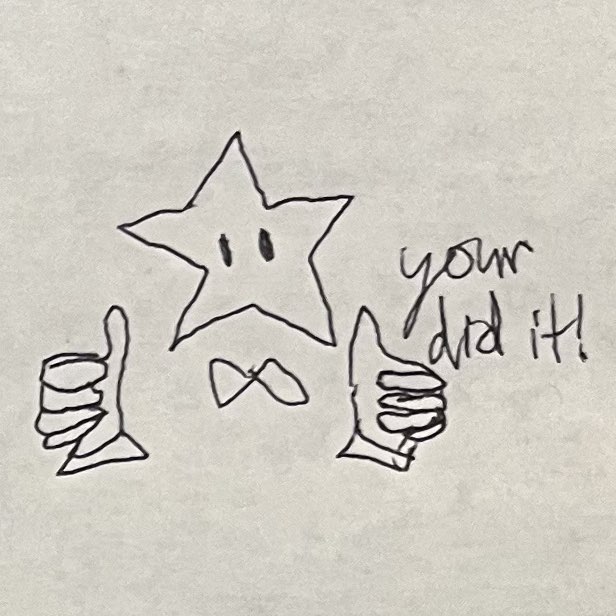 your
did it!